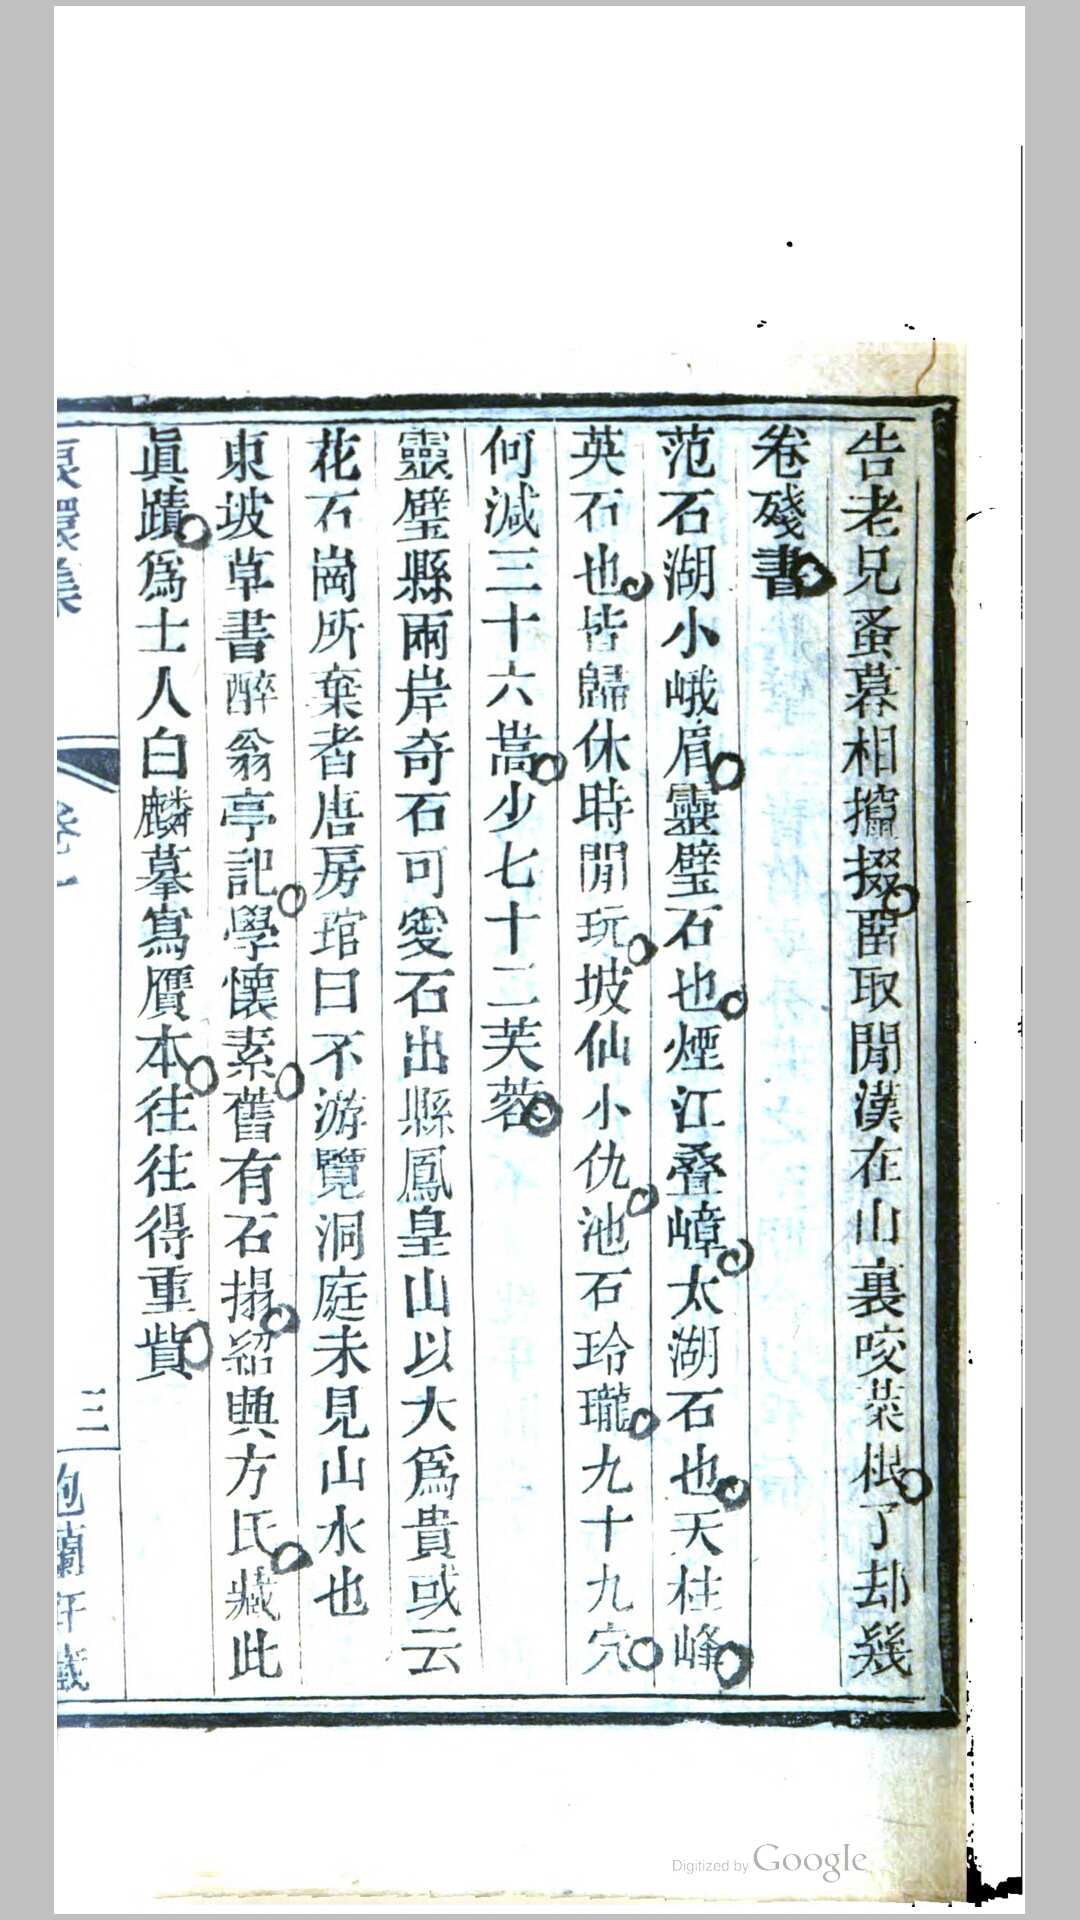 告老兄蚤暮相攛掇留取閒漢在山裏咬菜根了却幾
卷殘書
范石湖小峨眉靈璧石也煙江叠嶂太湖石也天柱峰
英石也皆歸休時閒玩坡仙小仇池石玲瓏九十九穴
何減三十六嵩少七十二芙蓉
靈璧縣兩岸奇石可愛石出縣鳳皇山以大爲貴或云
花石崗所棄者唐房琯曰不游覽洞庭未見山水也
東坡草書醉翁亭記學懷素舊有石搨紹興方氏藏此
眞蹟爲士人白麟摹寫贋本往往得重貲
卷一
三
Digitized by Google